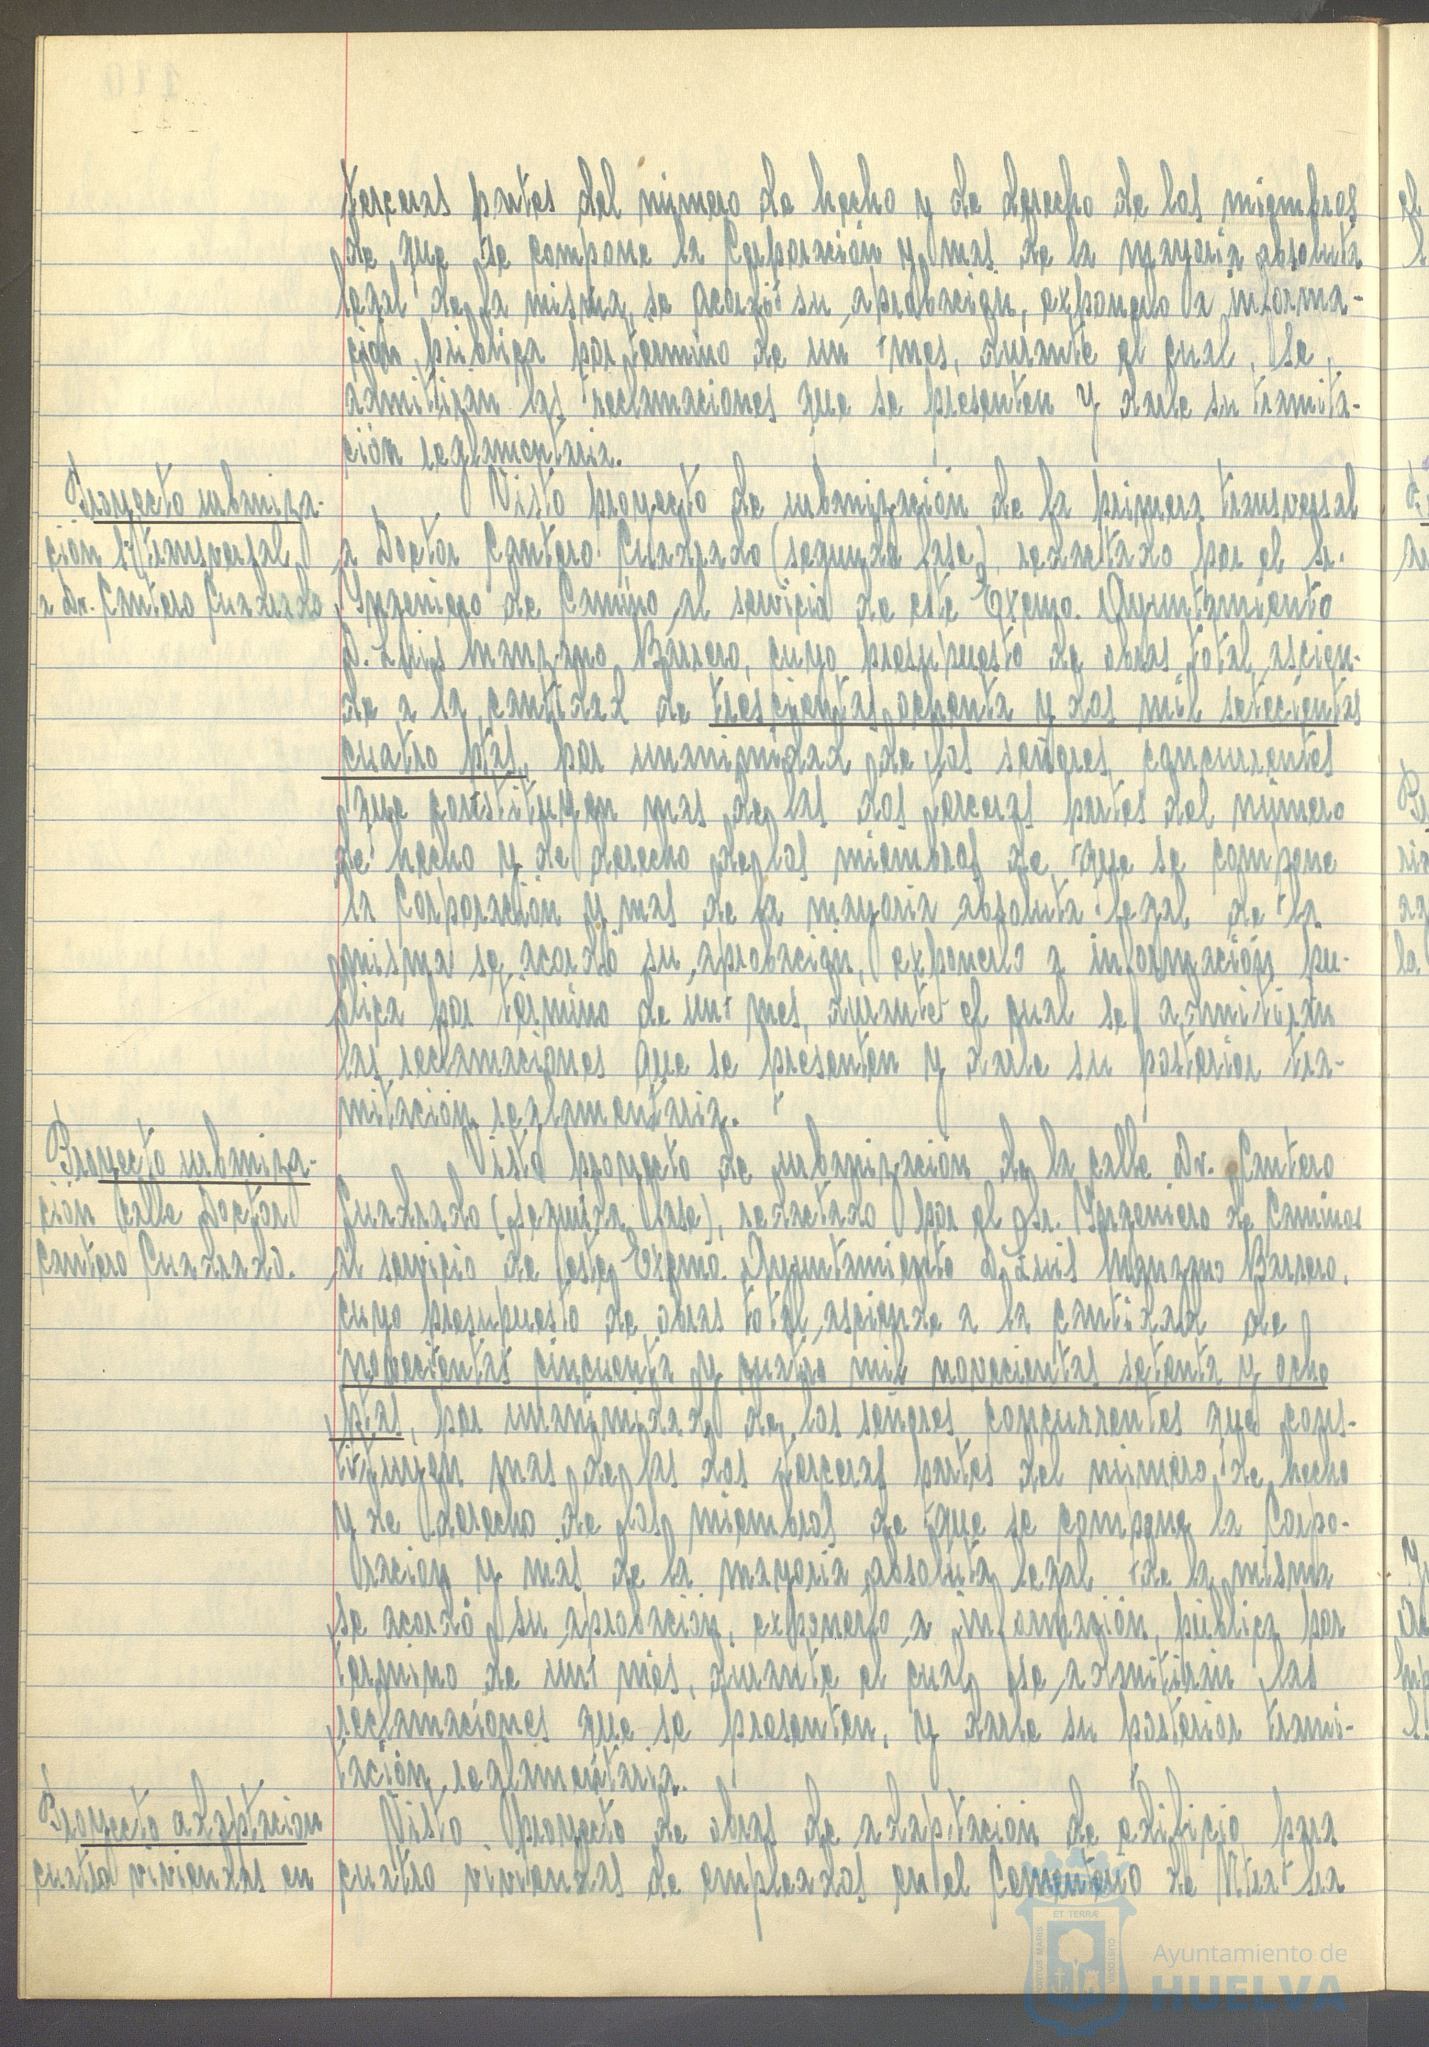 terceras partes del número de hecho y de derecho de los miembros
de que se compone la Corporación y mas de la mayoria absoluta
legal de la misma, se acordó su aprobación, exponerlo a informa-
ción pública por termino de un mes, durante el cual, se
admitiran las reclamaciones que se presenten y darle su tramita-
ción reglamentaria.
Proyecto urbaniza-
ción 1ª transversal
a Dr. Cantero Cuadrado
Visto proyecto de urbanización de la primera transversal
a Doctor Cantero Cuadrado (segunda fase), redactado por el Sr.
Ingeniero de Camino al servicio de este Excmo. Ayuntamiento
D. Luis Manzano Barrero, cuyo presupuesto de obras total ascien-
de a la cantidad de trescientas ochenta y dos mil setecientas
cuatro ptas, por unanimidad de los señores concurrentes
que constituyen mas de las dos terceras partes del número
de hecho y de derecho de los miembros de que se compone
la Corporación y mas de la mayoria absoluta legal de la
misma se acordó su aprobación, exponerlo a información pu-
blica por término de un mes, durante el cual se admitirán
las reclamaciones que se presenten y darle su posterior tra-
mitación reglamentaria.
Proyecto urbaniza-
ción calle Doctor
Cantero Cuadrado.
Visto proyecto de urbanización de la calle Dr. Cantero
Cuadrado (segunda fase), redactado por el Sr. Ingeniero de Caminos
al servicio de este Excmo. Ayuntamiento D. Luis Manzano Barrero,
cuyo presupuesto de obras total asciende a la cantidad de
novecientas cincuenta y cuatro mil novecientas setenta y ocho
ptas, por unanimidad de los señores concurrentes que cons-
tituyen mas de las dos terceras partes del número de hecho
y de derecho de los miembros de que se compone la Corpo-
ración y mas de la mayoria absoluta legal de la misma
se acordó su aprobación, exponerlo a información pública por
termino de un mes, durante el cual se admitirán las
reclamaciones que se presenten, y darle su posterior trami-
tación reglamentaria.
Proyecto adaptacion
cuatro viviendas en
Visto Proyecto de obras de adaptacion de edificio para
cuatro viviendas de empleados en el Cementerio de Ntra Sra
ET TERRÆ
Ayuntamiento de
HUELVA